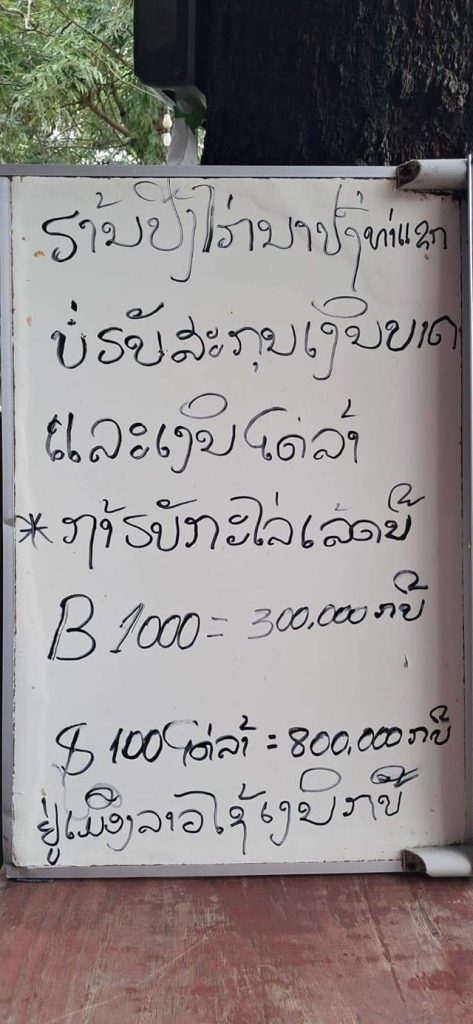 ຮ້ານປີ້ງໄກ່ນາປົ່ງທ່າແຂກ
ບໍ່ຮັບສະກຸນເງິນບາດ
ແລະເງິນໂດລ້າ
* ຖ້າຮັບກະໄລ່ເລ້ດນີ້
B 1000 = 300,000 ກີບ
$ 100 ໂດ່ລ້າ = 800,000 ກີບ
ຢູ່ເມືອງລາວໃຊ້ເງິນກີບ